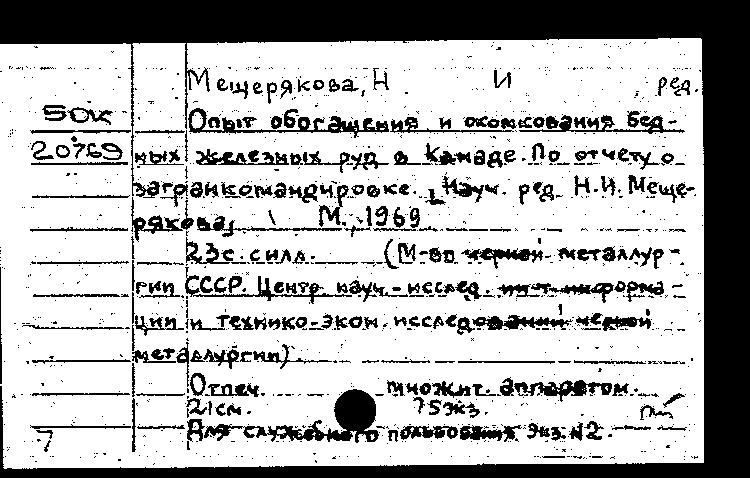 Мещерякова, Н И ред.
50к Опыт обогащения и окомкования бед-
20769 ных железных руд в Канаде. По отчету о
загранкомандировке. [Науч. ред. Н.И. Меще-
рякова] М., 1969
23с. с илл. (М-во черной металлур-
гии СССР. Центр. науч.-исслед. ин-т информа-
ции и технико-экон. исследований черной
металлургии).
Отпеч. множит. аппаратом.
21см. 75экз.
7 Для служебного пользования Экз. №2.